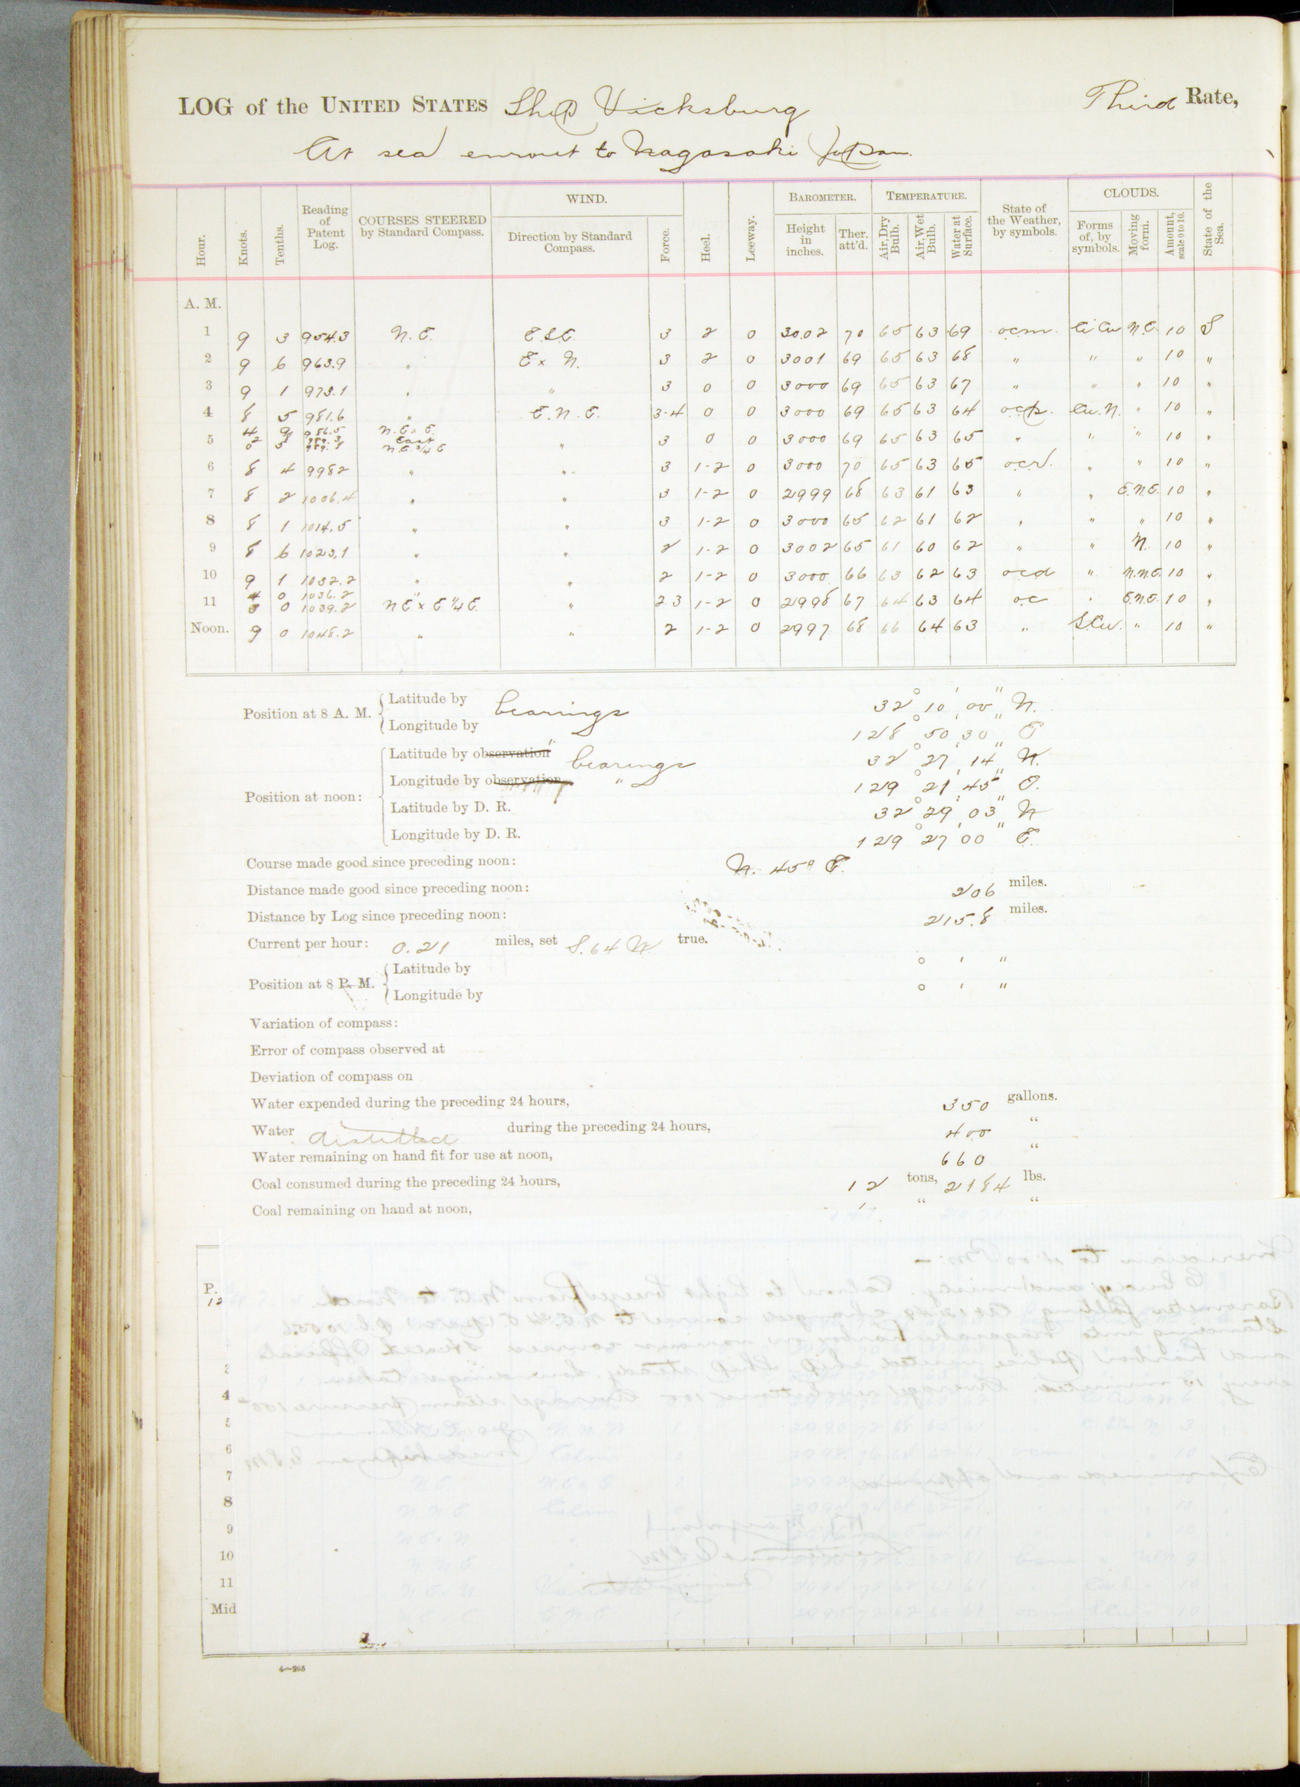 LOG of the UNITED STATES Ship Vicksburg Third Rate,
At sea enrout to Nagasaki Japan.
Hour. Knots. Tenths. Reading of Patent Log. COURSES STEERED by Standard Compass. WIND. Direction by Standard Compass. Force. Heel. Leeway. BAROMETER. Height in inches. Ther. att'd. TEMPERATURE. Air, Dry Bulb. Air, Wet Bulb. Water at Surface. State of the Weather, by symbols. CLOUDS. Forms of, by symbols. Moving form. Amount, scale 0 to 10. State of the Sea.
A. M.
1 9 3 954.3 N. E. E.S.E. 3 2 0 30.02 70 65 63 69 ocm. Ci Cu N.E. 10 S
2 9 6 963.9 " E x N. 3 2 0 3001 69 65 63 68 " " " 10 "
3 9 1 973.1 " " 3 0 0 3000 69 65 63 67 " " " 10 "
4 8 5 981.6 " E. N. E. 3-4 0 0 3000 69 65 63 64 ocp. Cu. N. " 10 "
4 9 986.5 N. E. x E.
5 2 8 989.3 East " 3 0 0 3000 69 65 63 65 " " " 10 "
0 5 989.8 N E 3/4 E
6 8 4 998.2 " " 3 1-2 0 3000 70 65 63 65 ocr. " " 10 "
7 8 2 1006.4 " " 3 1-2 0 2999 68 63 61 63 " " E.N.E. 10 "
8 8 1 1014.5 " " 3 1-2 0 3000 65 62 61 62 " " " 10 "
9 8 6 1023.1 " " 2 1-2 0 3002 65 61 60 62 " " N. 10 "
10 9 1 1032.2 " " 2 1-2 0 3000 66 63 62 63 ocd " N.N.E. 10 "
4 0 1036.2 "
11 3 0 1039.2 N E x E 1/4 E. " 2 3 1-2 0 2998 67 64 63 64 oc " E.N.E. 10 "
Noon. 9 0 1048.2 " " 2 1-2 0 2997 68 66 64 63 " S.Cu. " 10 "
Position at 8 A. M. Latitude by bearings 32° 10' 00" N.
Longitude by 128° 50' 30" E
Position at noon: Latitude by observation bearings 32° 27' 14" N.
Longitude by observation " 129° 21' 45" E.
Latitude by D. R. 32° 29' 03" N
Longitude by D. R. 129° 27' 00" E.
Course made good since preceding noon: N. 45° E.
Distance made good since preceding noon: 206 miles.
Distance by Log since preceding noon: 215.8 miles.
Current per hour: 0.21 miles, set S. 64 W true.
Position at 8 P. M. Latitude by ° ' "
Longitude by ° ' "
Variation of compass:
Error of compass observed at
Deviation of compass on
Water expended during the preceding 24 hours, 350 gallons.
Water distilled during the preceding 24 hours, 400 "
Water remaining on hand fit for use at noon, 660 "
Coal consumed during the preceding 24 hours, 12 tons, 2184 lbs.
Coal remaining on hand at noon, " "
P.
12
4
5
6
7
8
9
10
11
Mid